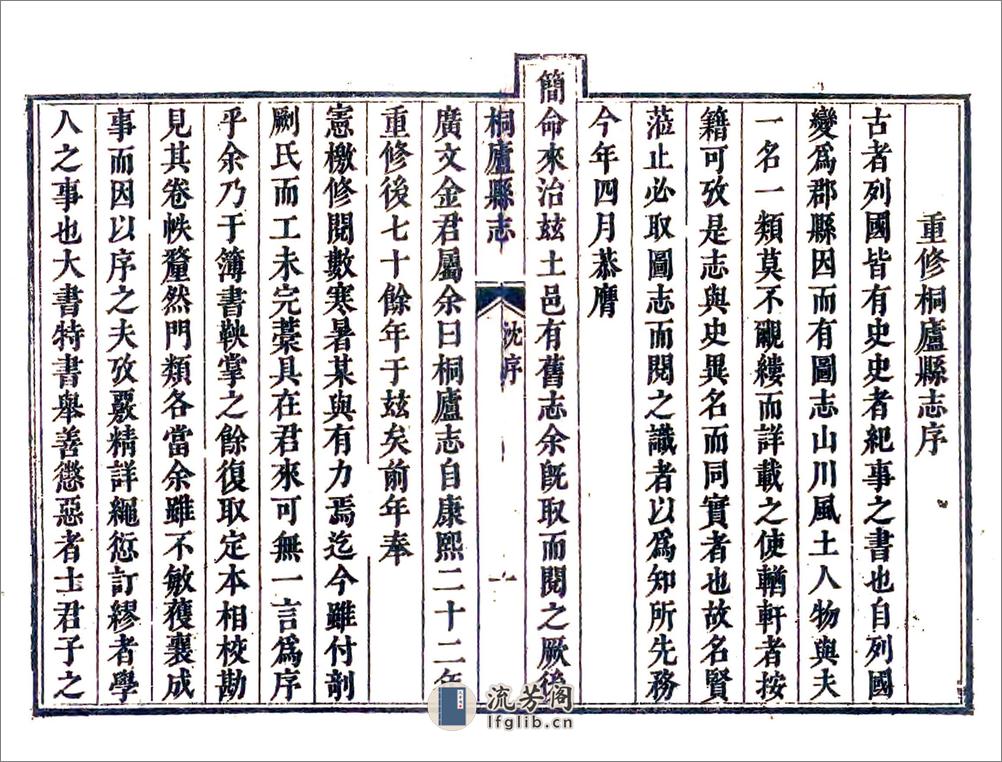 重修桐廬縣志序
古者列國皆有史史者紀事之書也自列國
變爲郡縣因而有圖志山川風土人物與夫
一名一類莫不覼縷而詳載之使輶軒者按
籍可攷是志與史異名而同實者也故名賢
蒞止必取圖志而閱之識者以爲知所先務
今年四月恭膺
簡命來治玆土邑有舊志余旣取而閱之厥後
桐廬縣志
沈序
一
廣文金君屬余曰桐廬志自康熙二十二年
重修後七十餘年于玆矣前年奉
憲檄修閱數寒暑某與有力焉迄今雖付剞
劂氏而工未完藁具在君來可無一言爲序
乎余乃于簿書鞅掌之餘復取定本相校勘
見其卷帙釐然門類各當余雖不敏獲襄成
事而因以序之夫攷覈精詳繩愆訂繆者學
人之事也大書特書舉善懲惡者士君子之
流芳阁
lfglib.cn